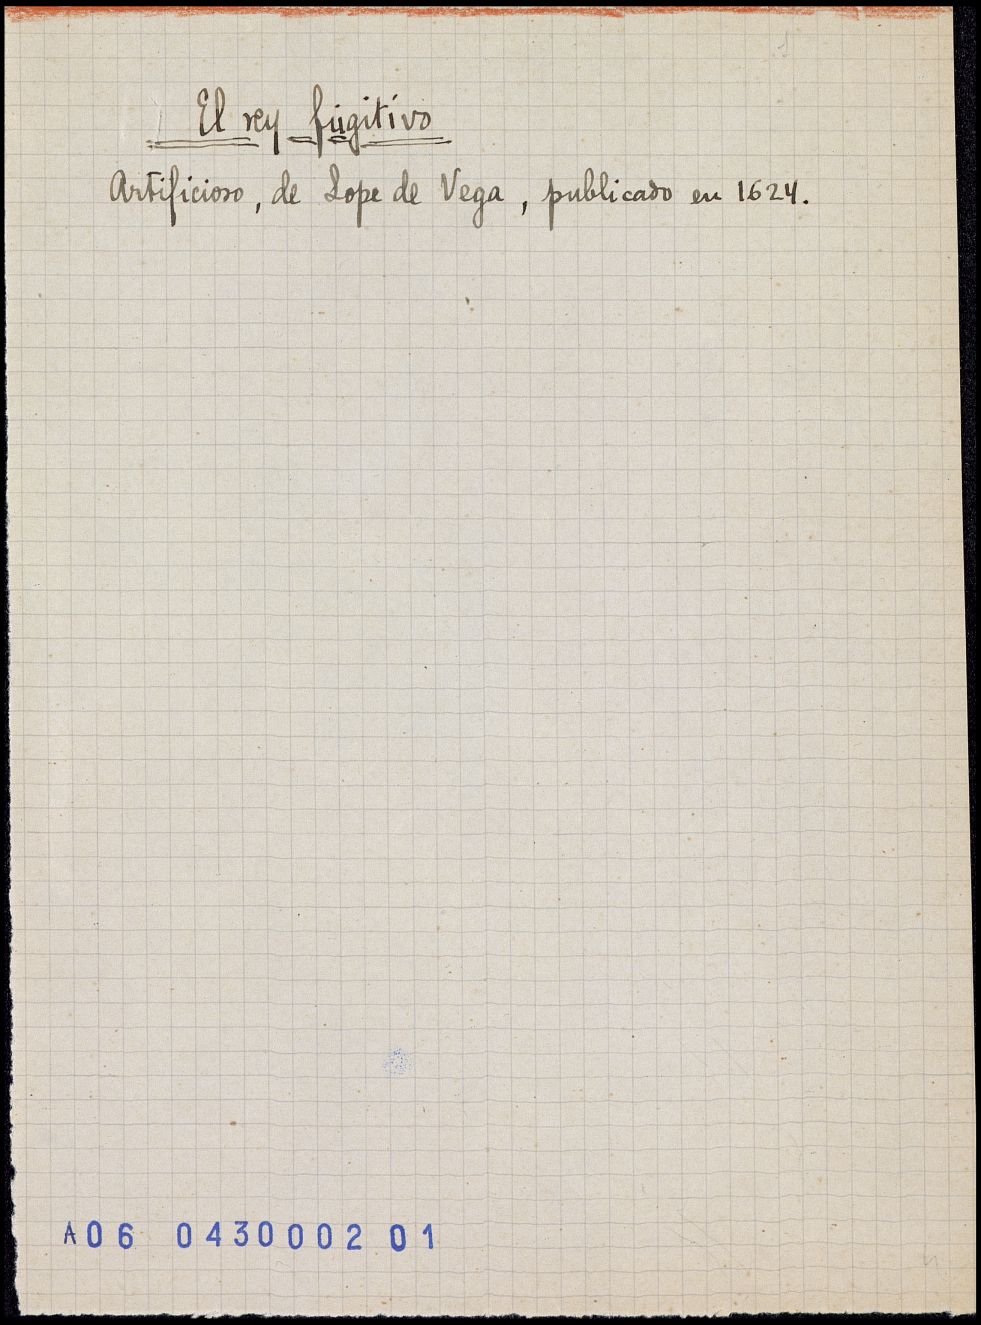 El rey fugitivo
Artificioso, de Lope de Vega, publicado en 1624.
A06 0430002 01